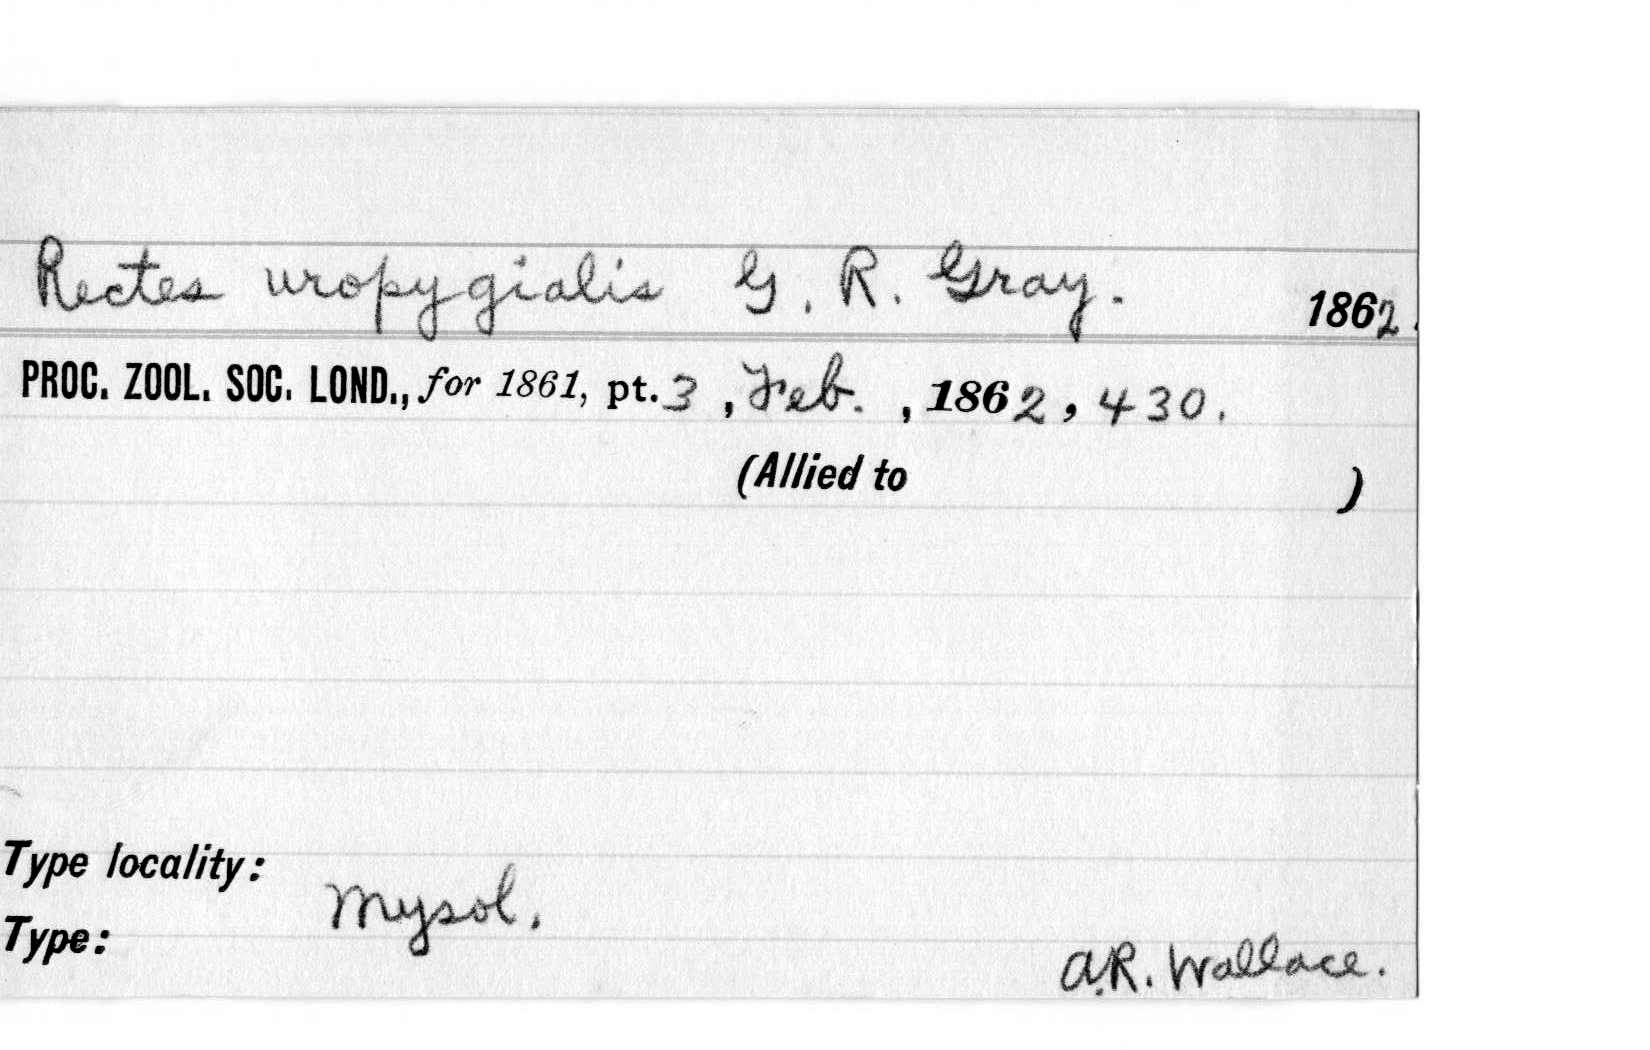 Rectes uropygialis G. R. Gray. 1862.
PROC. ZOOL. SOC. LOND., for 1861, pt. 3, Feb., 1862, 430.
(Allied to )
Type locality:
Mysol.
Type:
A.R. Wallace.